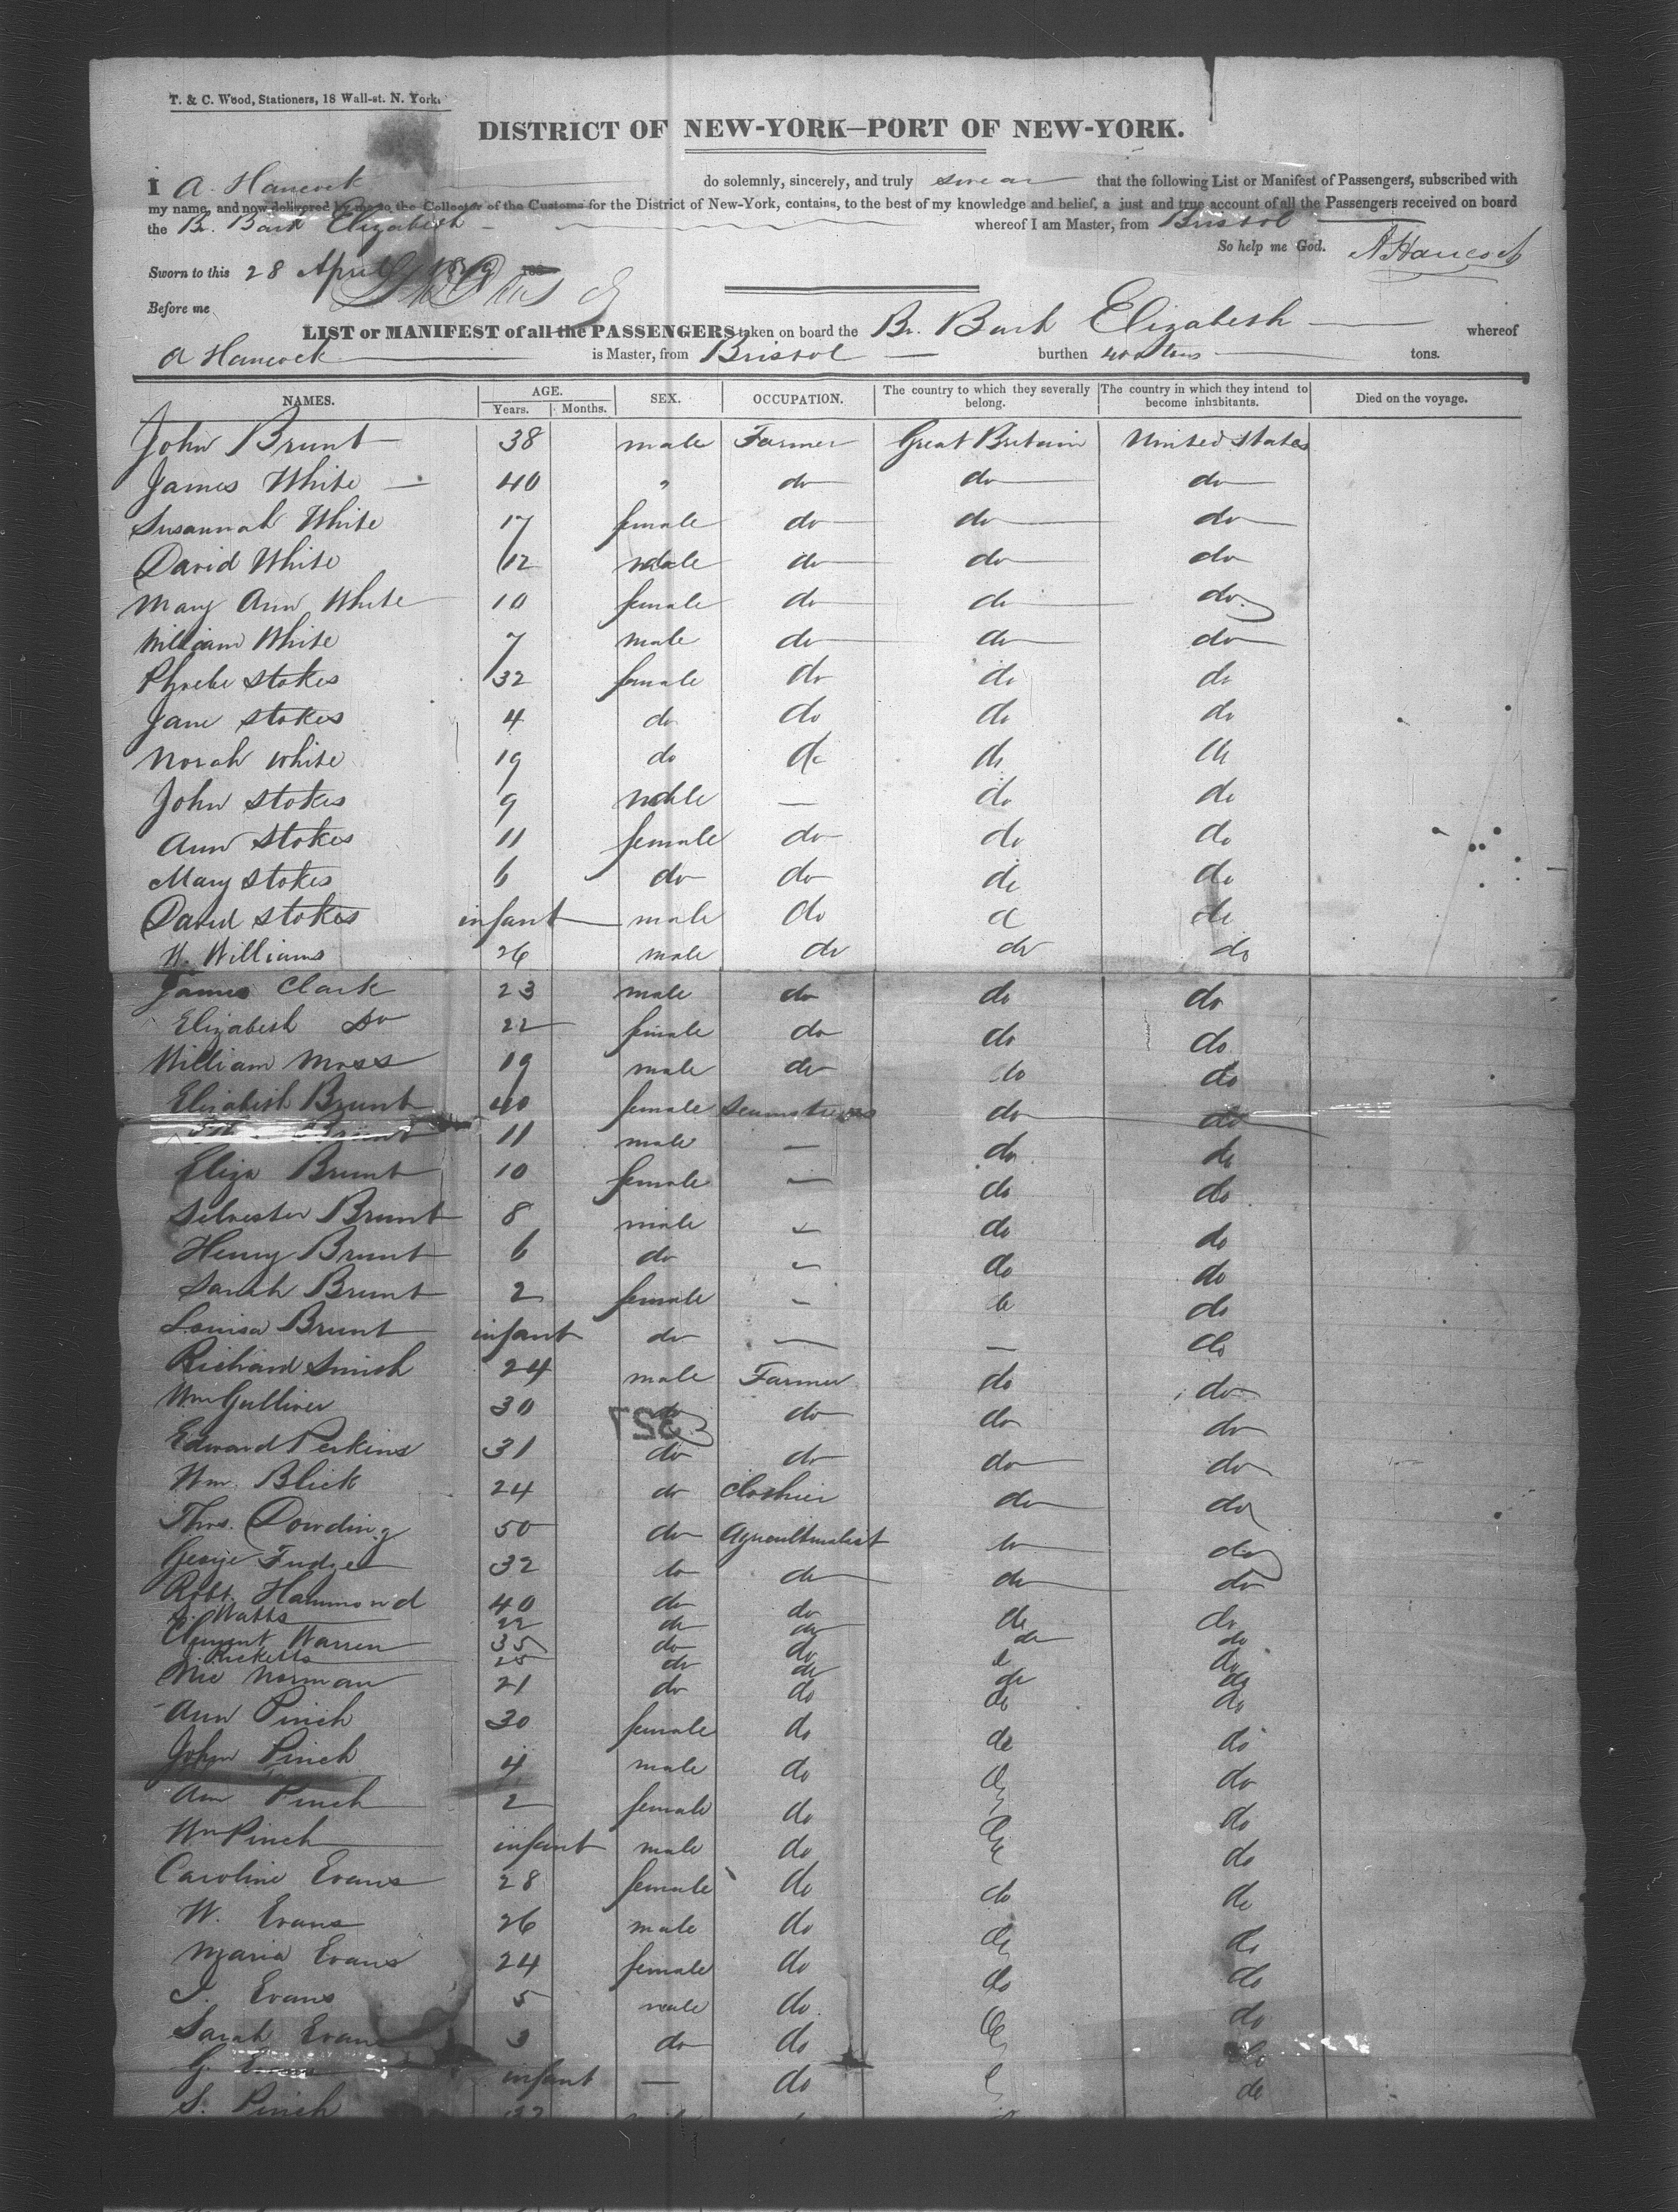 T. & C. Wood, Stationers, 18 Wall-st. N. York.
DISTRICT OF NEW-YORK—PORT OF NEW-YORK.
I A. Hancock do solemnly, sincerely, and truly swear that the following List or Manifest of Passengers, subscribed with
my name, and now delivered by me to the Collector of the Customs for the District of New-York, contains, to the best of my knowledge and belief, a just and true account of all the Passengers received on board
the Br. Bark Elizabeth whereof I am Master, from Bristol
So help me God. A Hancock
Sworn to this 28 April
Before me
LIST or MANIFEST of all the PASSENGERS taken on board the Br. Bark Elizabeth whereof
A Hancock is Master, from Bristol burthen tons.
NAMES. AGE. Years. Months. SEX. OCCUPATION. The country to which they severally belong. The country in which they intend to become inhabitants. Died on the voyage.
John Brunt 38 male Farmer Great Britain United States
James White 40 " do do do
Susannah White 17 female do do do
David White 12 male do do do
Mary Ann White 10 female do do do
William White 7 male do do do
Phoebe Stokes 32 female do do do
Jane Stokes 4 do do do do
Norah White 19 do do do do
John Stokes 9 male — do do
Ann Stokes 11 female do do do
Mary Stokes 6 do do do do
David Stokes infant male do do do
W. Williams 26 male do do do
James Clark 23 male do do do
Elizabeth Do 22 female do do do
William Moss 19 male do do do
Elizabeth Brunt 40 female Seamstress do do
Brunt 11 male — do do
Eliza Brunt 10 female — do do
Silvester Brunt 8 male — do do
Henry Brunt 6 do — do do
Sarah Brunt 2 female — do do
Louisa Brunt infant do — — do
Richard Smith 24 male Farmer do do
Wm Gulliver 30 do do do do
327
Edward Perkins 31 do do do do
Wm. Blick 24 do Clothier do do
Thos. Dowding 50 do Agriculturalist do do
George Fudge 32 do do do do
Robt. Hammond 40 do do do do
Watts 22 do do do do
Clement Warren 35 do do do do
Ricketts 25 do do do do
Norman 21 do do do do
Ann Pinch 30 female do do do
John Pinch 4 male do do do
Ann Pinch 2 female do do do
Wm Pinch infant male do do do
Caroline Evans 28 female do do do
W. Evans 26 male do do do
Maria Evans 24 female do do do
J. Evans 5 male do do do
Sarah Evans 3 do do do do
G. Evans infant — do do do
S. Pinch